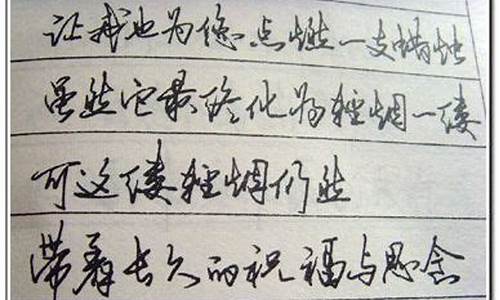 让我也为您点燃一支蜡烛
虽然它最终化为轻烟一缕
可这缕轻烟仍然
带着长久的祝福与思念